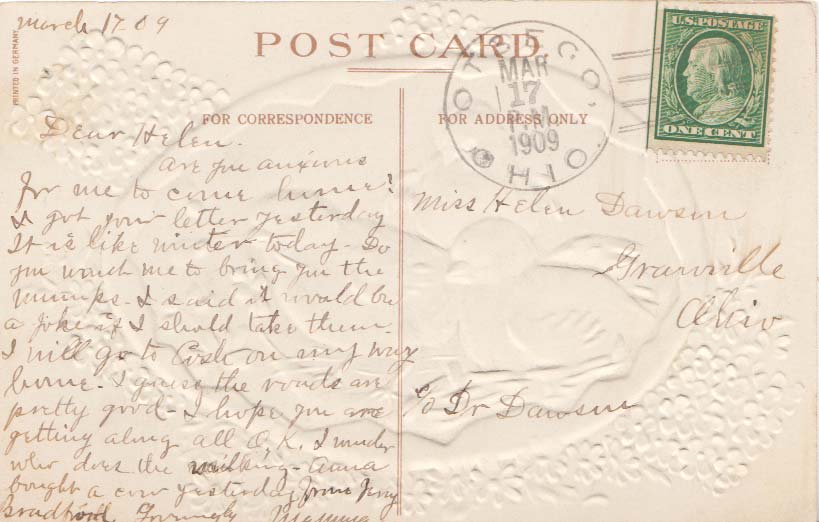 March 17. 09
PRINTED IN GERMANY
POST CARD.
FOR CORRESPONDENCE
Dear Helen.
Are you anxious
for me to come home?
I got your letter yesterday
It is like winter today - Do
you want me to bring you the
mumps - I said it would be
a joke if I should take them.
I will go to Cosh on my way
home - I guess the roads are
pretty good - I hope you are
getting along all O.K. I wonder
who does the milking - Anna
bought a cow yesterday from Jerry
Bradford Lovingly Mamma
FOR ADDRESS ONLY
OTSEGO, OHIO.
MAR
17
PM
1909
U.S. POSTAGE
ONE CENT
Miss Helen Dawson
Granville
Ohio
c/o Dr Dawson